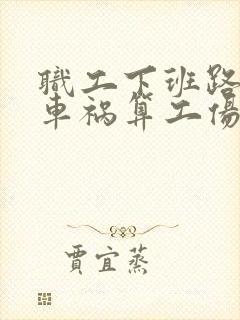 職工下班路
車祸算工傷
賈宜蒸